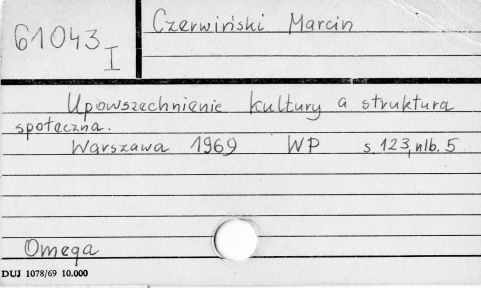 61043
I
Czerwiński Marcin
Upowszechnienie kultury a struktura
społeczna.
Warszawa 1969 WP s. 123, nlb. 5
Omega
DUJ 1078/69 10.000